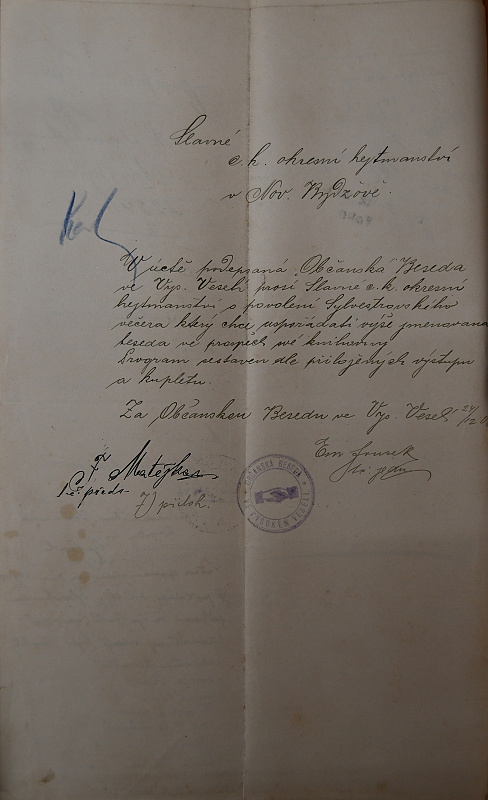 Slavné
c. k. okresní hejtmanství
v Nov. Bydžově.
V úctě podepsaná „Občanská" Beseda
ve Vys. Veselí prosí Slavné c. k. okresní
hejtmanství o povolení Sylvestrovského
večera který chce uspořádati výše jmenovaná
beseda ve prospěch své knihovny
Program sestaven dle přiložených výstupu
a kupletu.
Za Občanskou Besedu ve Vys. Veselí 24/12
Em
F Matějka
předs.
7) příloh.
OBČANSKÁ BESEDA
VE VYSOKÉM VESELÍ